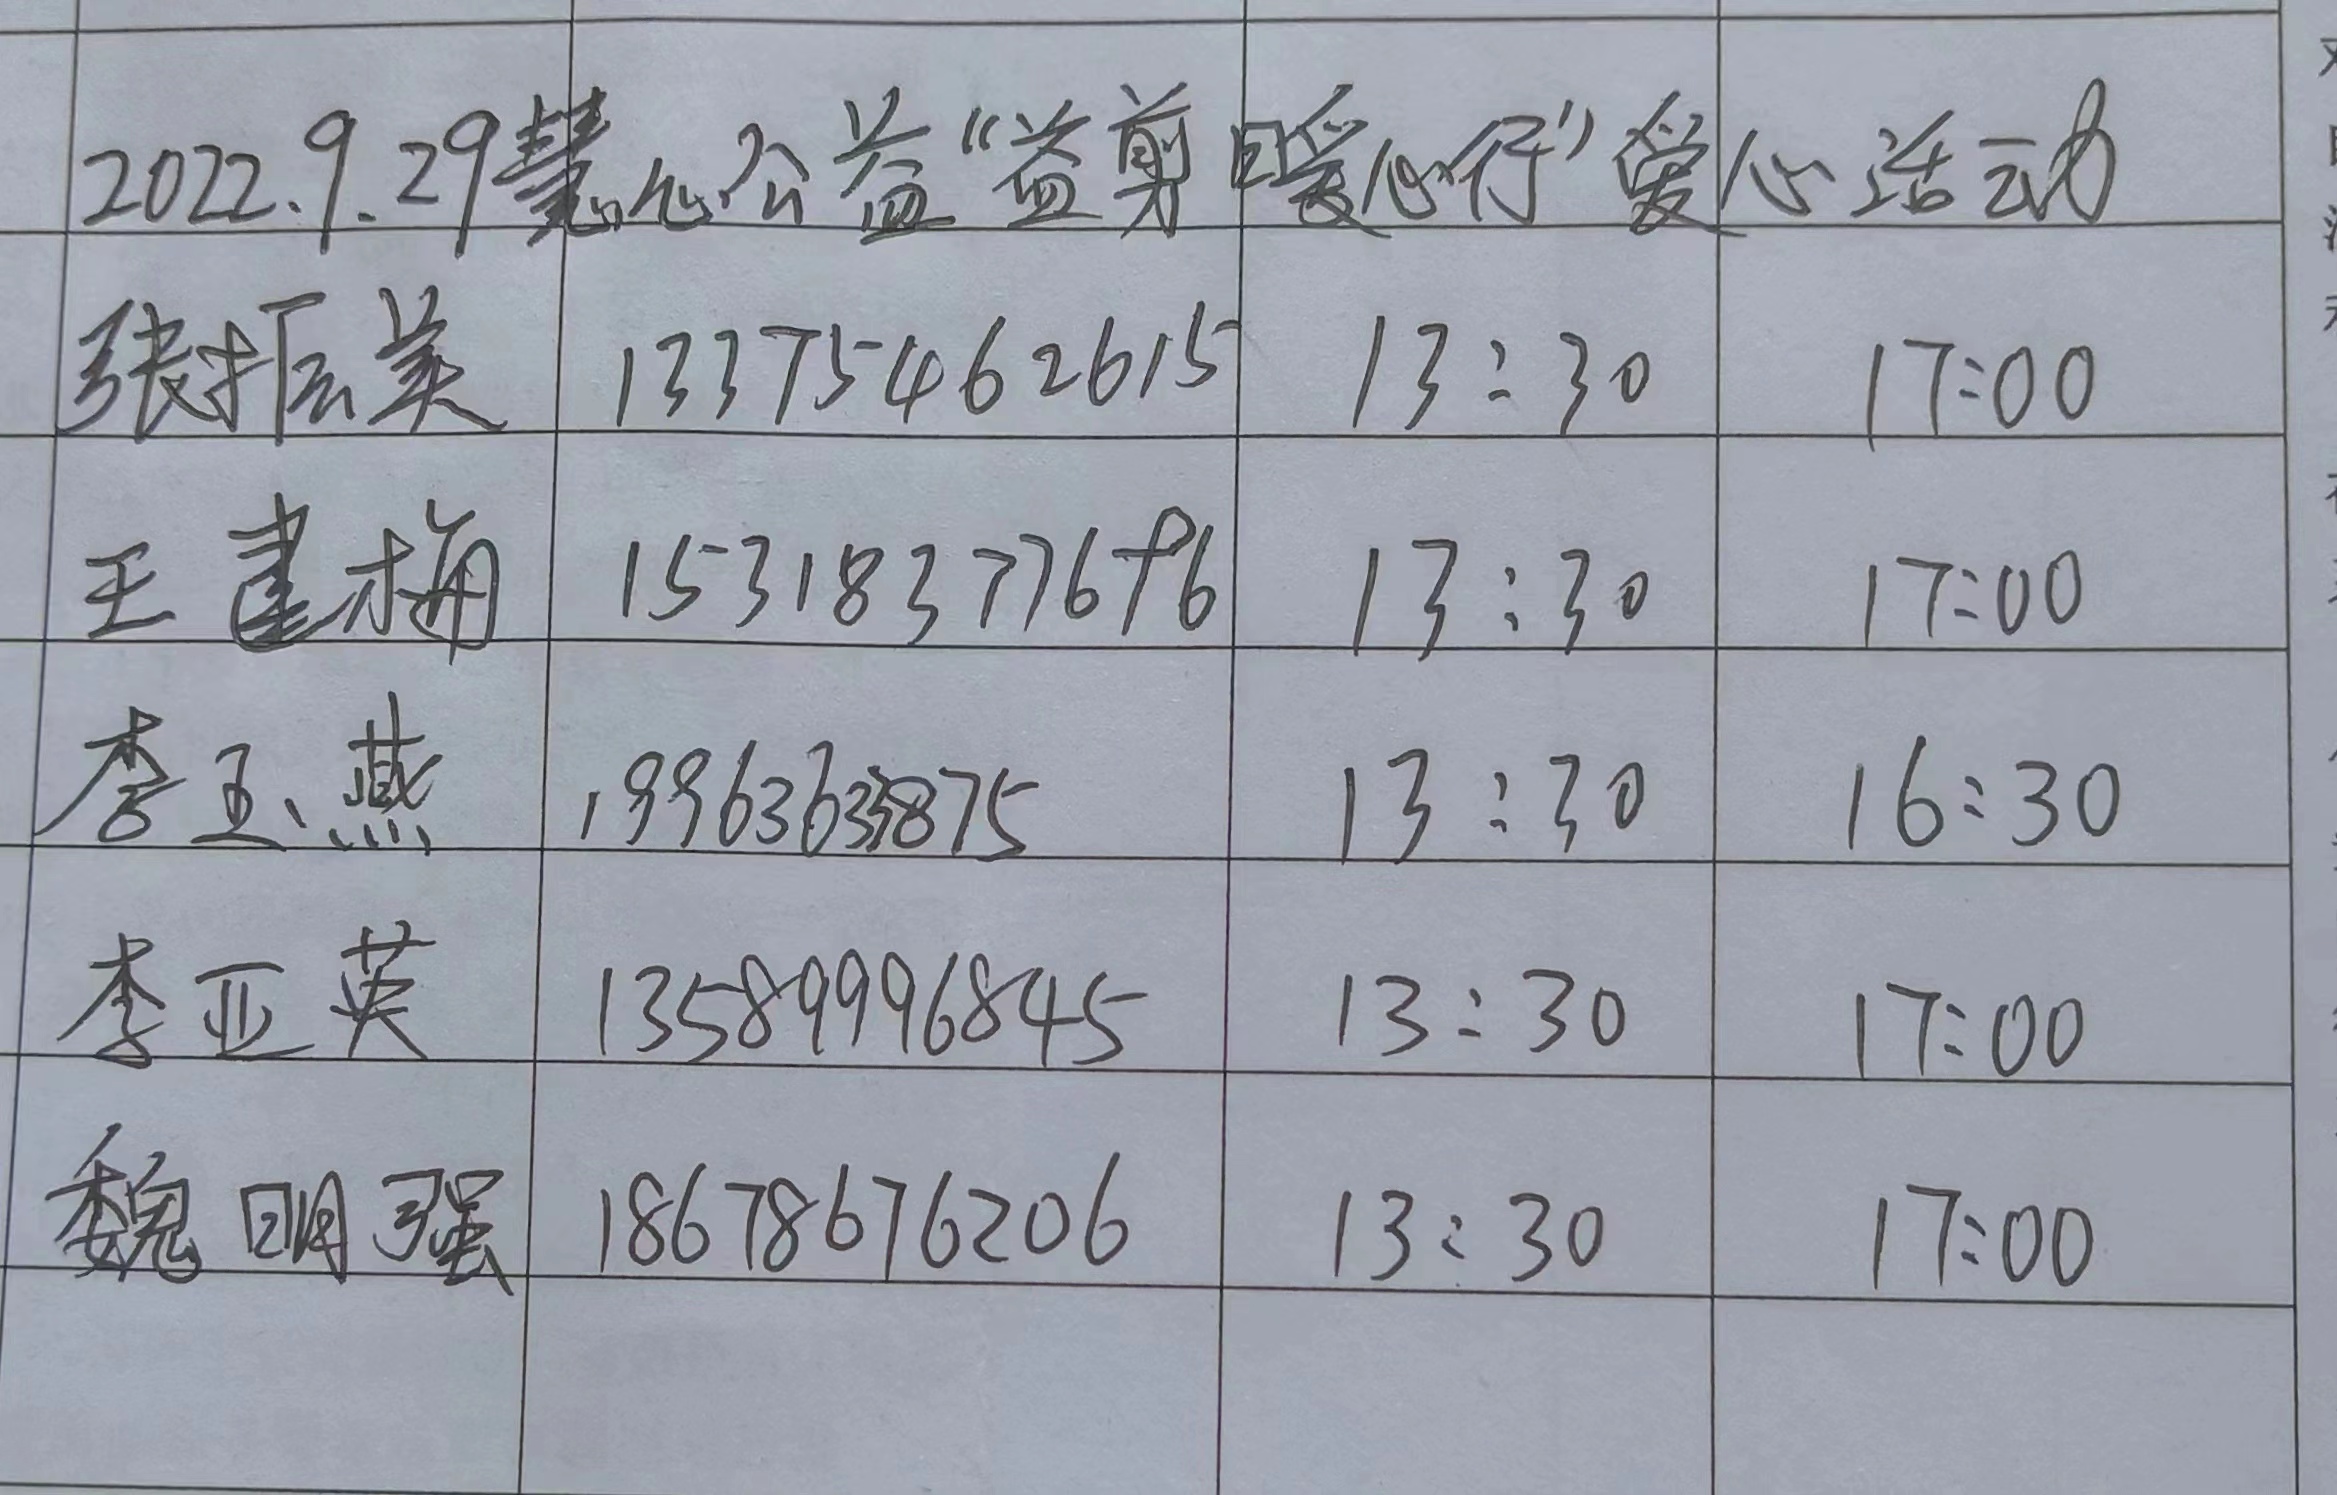 2022.9.29慧心公益“益剪暖心行”爱心活动
张振美 13375462615 13:30 17:00
王建梅 15318377696 13:30 17:00
李玉燕 13:30 16:30
李亚英 13589996845 13:30 17:00
魏明强 18678676206 13:30 17:00